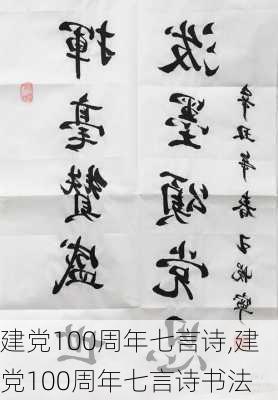 揮毫贊盛世
泼墨頌党
辛丑年春王
建党100周年七言诗,建
党100周年七言诗书法